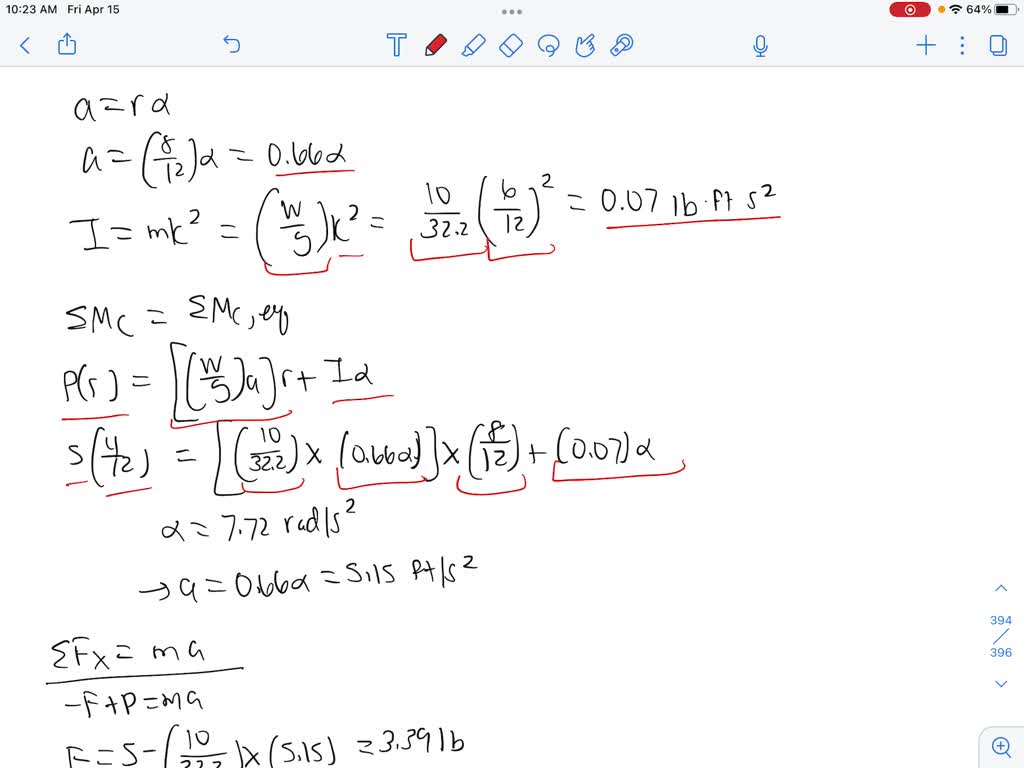 10:23 AM Fri Apr 15 64%
a = rα
a = (8/12)α = 0.66α
I = mk² = (W/g)k² = 10/32.2 (6/12)² = 0.07 lb·ft s²
ΣMc = ΣMc,eq
P(r) = [(W/g)a]r + Iα
5(4/12) = [(10/32.2) x (0.66α)] x (8/12) + (0.07)α
α = 7.72 rad/s²
→ a = 0.66α = 5.15 ft/s²
ΣFx = ma
-F+P = ma
F = 5-(10/32.2) x (5.15) = 3.39 lb
394
396